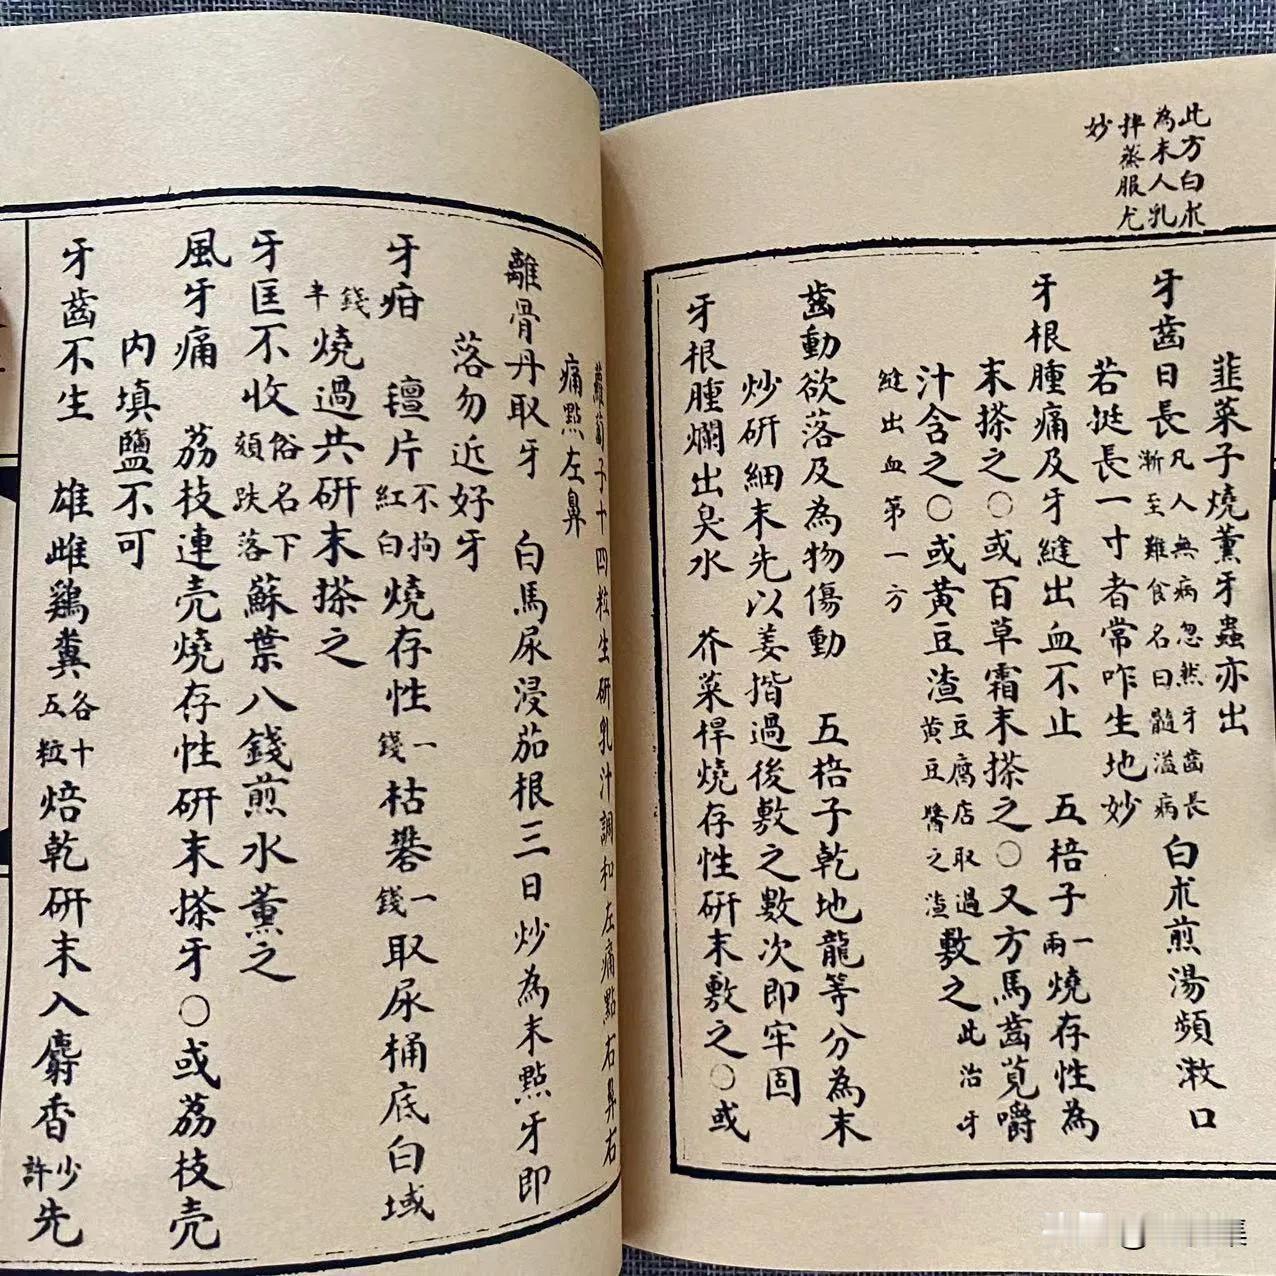 此方白朮
為末人乳
拌蒸服尤
妙
韮菜子燒薰牙蟲亦出
牙齒日長凡人無病忽然牙齒長漸至難食名曰髓溢病白朮煎湯頻漱口
若挺長一寸者常咋生地妙
牙根腫痛及牙縫出血不止 五棓子一兩燒存性為
末搽之○或百草霜末搽之○又方馬齒莧嚼
汁含之○或黃豆渣豆腐店取過黃豆醬之渣敷之此治牙
縫出血第一方
齒動欲落及為物傷動 五棓子乾地龍等分為末
炒研細末先以姜揩過後敷之數次即牢固
牙根腫爛出臭水 芥菜桿燒存性研末敷之○或
蘿蔔子十四粒生研乳汁調和左痛點右鼻右
痛點左鼻
離骨丹取牙 白馬尿浸茄根三日炒為末點牙即
落勿近好牙
牙疳 氊片不拘紅白燒存性一錢枯礬一錢取尿桶底白域
錢半燒過共研末搽之
牙匡不收俗名下頦跌落蘇葉八錢煎水薰之
風牙痛 荔枝連壳燒存性研末搽牙○或荔枝壳
內填鹽不可
牙齒不生 雄雌鷄糞各十五粒焙乾研末入麝香少許先